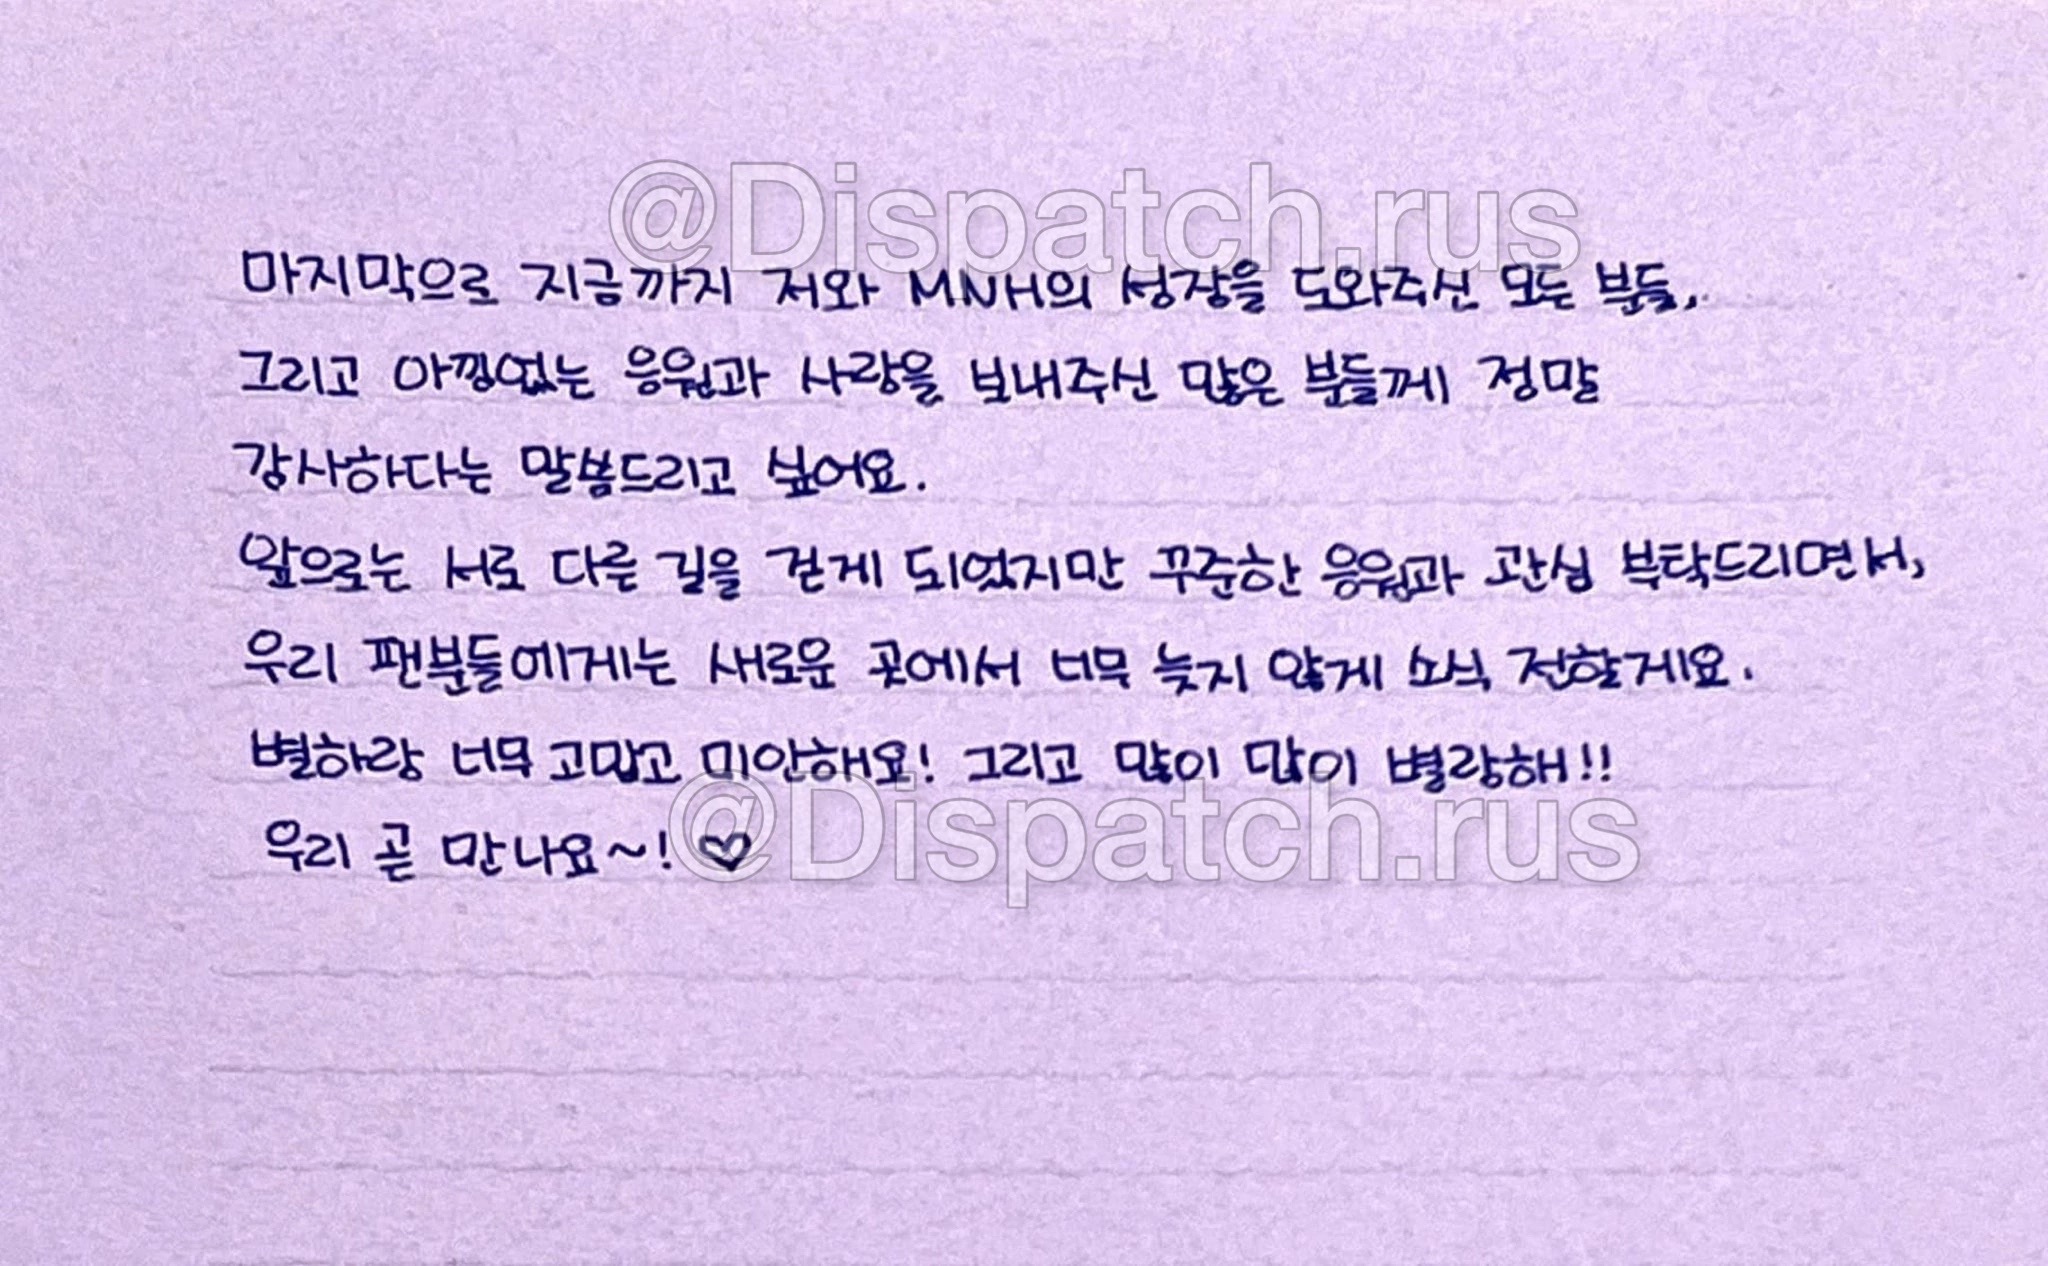 @Dispatch.rus
마지막으로 지금까지 저와 MNH의 성장을 도와주신 모든 분들,
그리고 아낌없는 응원과 사랑을 보내주신 많은 분들께 정말
감사하다는 말씀드리고 싶어요.
앞으로는 서로 다른 길을 걷게 되었지만 꾸준한 응원과 관심 부탁드리면서,
우리 팬분들에게는 새로운 곳에서 너무 늦지 않게 소식 전할게요.
별하랑 너무 고맙고 미안해요! 그리고 많이 많이 별랑해!!
@Dispatch.rus
우리 곧 만나요~! ♡